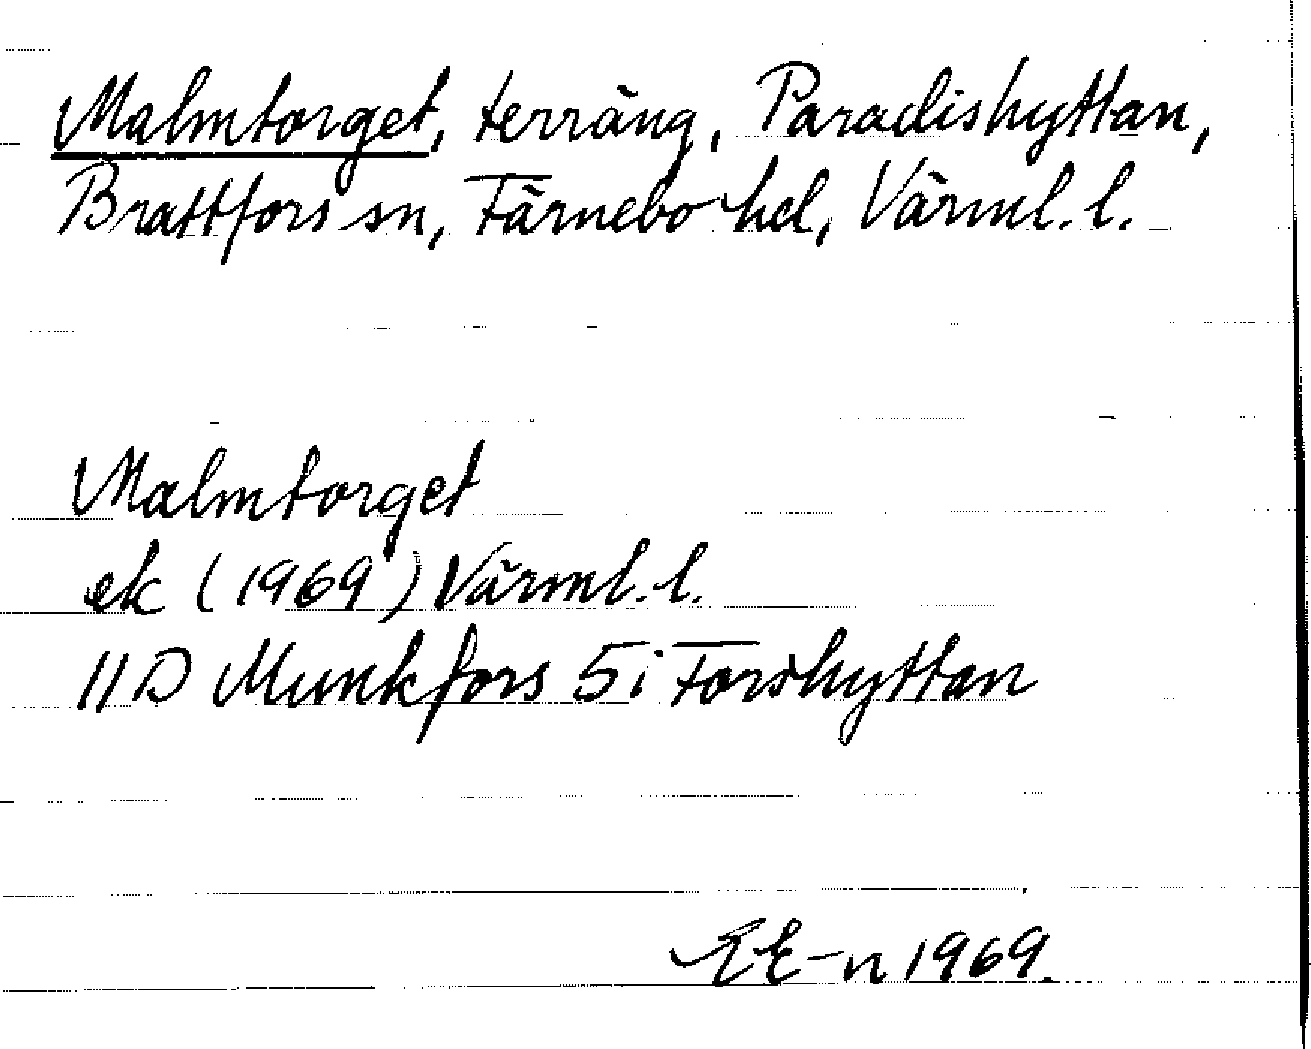 Malmtorget, terräng, Paradishyttan,
Brattfors sn, Färnebo hd, Värml. l.
Malmtorget
ek (1969) Värml. l.
11D Munkfors 5i Forshyttan
EE-n 1969.